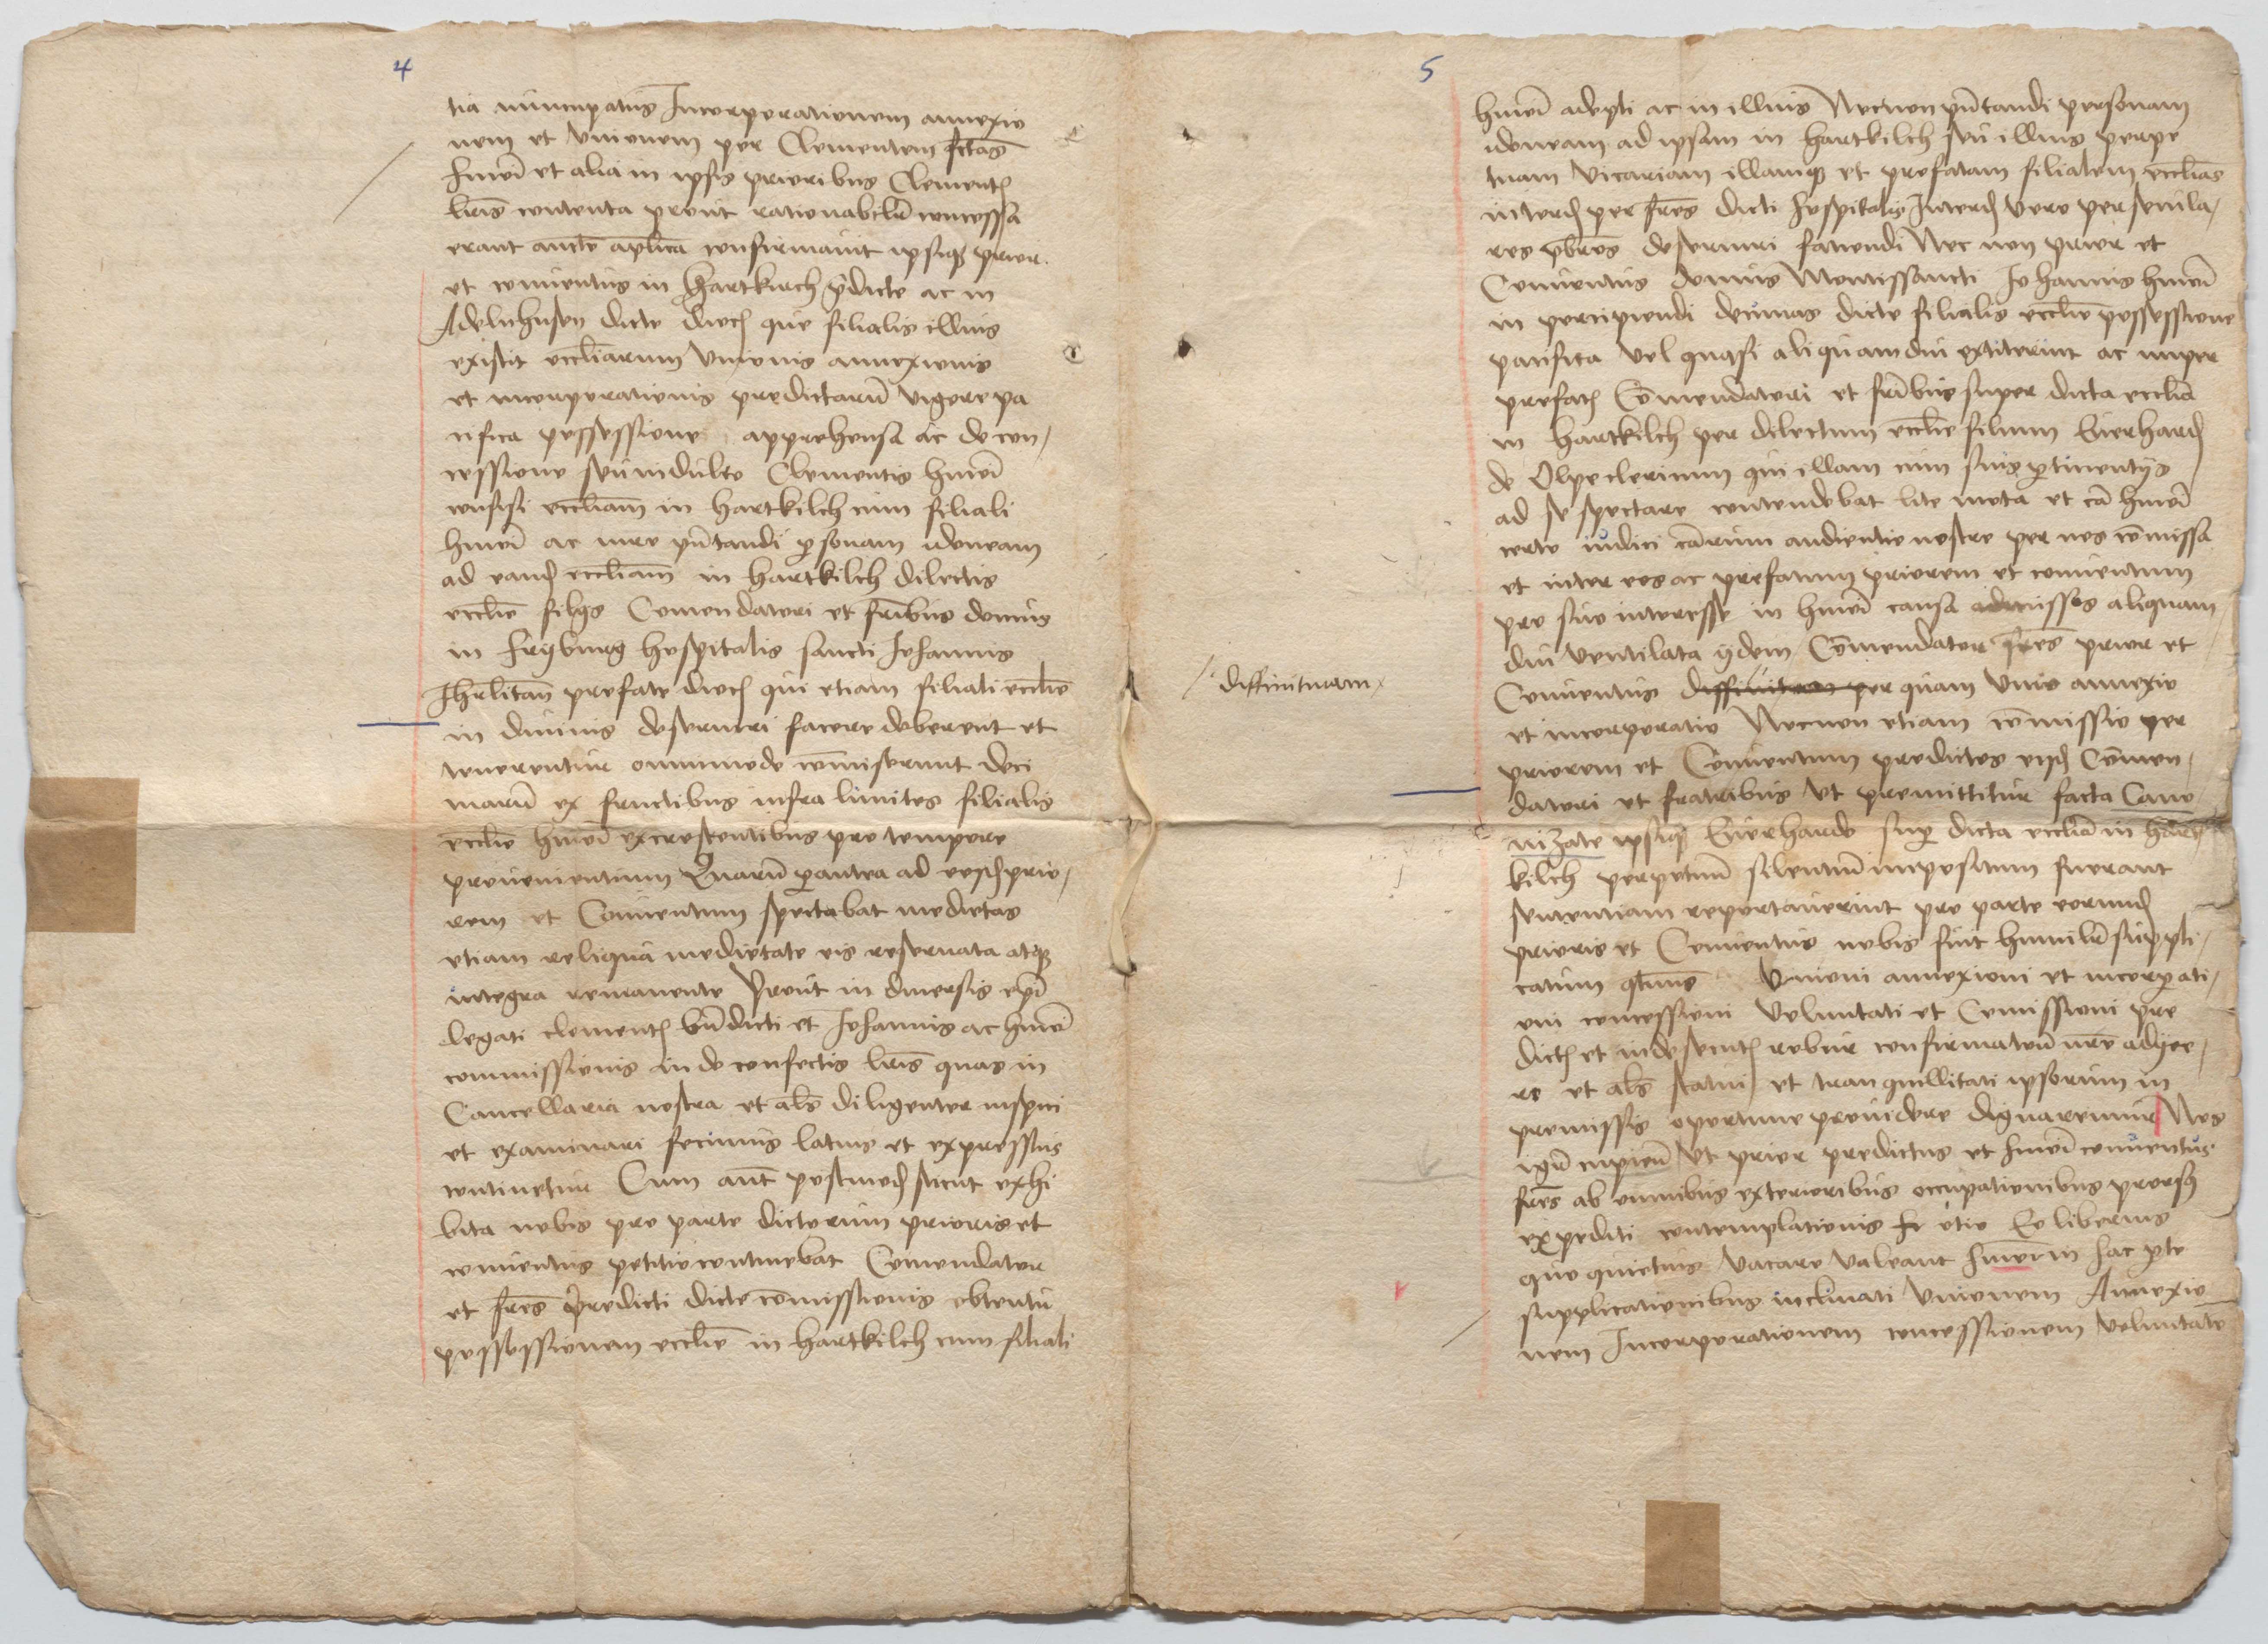 4
tia nuncupatus Incorporationem annexio
nem et Unionem per Clementem fctas
hmōi et alia in ipsis prioribus Clement
lris contenta prout rationabilr concessa
erant aucte aplica confirmavit ipsiqȝ prior
et conventus in Hartkirch p̄dicte ac in
Adelnhusen dicte dioc que filialis illius
existit eccliarum Unionis annexionis
et incorporationis predictarū vigore pa
cifica possessione apprehensa ac de con,
cessione seu indulto Clementis hmōi
confisi eccliam in hartkilch cum filiali
hmōi ac iure pn̄tandi personam ideoneam
ad eand eccliam in hartkilch dilectis
ecclie filijs Comendatori et fribus domus
in fryburg hospitalis sancti Johannis
Jhrlitan prefate dioc qui etiam filiali ecclie
in divinis deserviri facere deberent et
tenerentur omnimode cōmiserunt deci
marū ex fructibus infra limites filialis
ecclie hmōi excrescentibus pro tempore
provenientium Quarū p antea ad eosd prio,
rem et Conventum spectabat medietas
etiam reliqua medietate eis reservata atqȝ
integra remanente Prout in diversis ep̄i
legati clement bn̄dicti et Johannis ac hmōi
commissionis inde confectis lris quas in
Cancellaria nostra et als diligenter inspici
et examinari fecimus latius et expressius
continetur Cum aūt postmod sicut exhi
bita nobis pro parte dictorum prioris et
conventus petitio continebat Comendator
et frēs predicti dicte comissionis obtentu
possessionem ecclie in hartkilch cum filiali
5
hmōi adepti ac in illius Necnon pn̄tandi personam
ideoneam ad ipsam in hartkilch seu illius perpe
tuam vicariam illamqȝ et prefatam filialem ecclias
interd per frēs dicti hospitalis Interd vero per secula,
res pbr̄os deserviri faciendi Nec non prior et
Conventus domus Montissancti Johannis hmōi
in percipiendi decimas dicte filialis ecclie possessione
pacifica vel quasi aliquamdiu extiterint ac nuper
prefat Cōmendatori et frībus super dicta ecclia
in hartkilch per dilectum ecclie filium Everhard
de Olpe clericum qui illam cum suis ptinentijs
ad se spectare contendebat lite mota et cā hmōi
certo iudici cārum audientie nostre per nos cōmissa
et inter eos ac prefatum priorem et conventum
pro suo interesse in hmōi causa admissos aliquam
diu ventilata ijdem Cōmendator frēs prior et
/ diffinitivam
Conventus diffinitivam per quam Unio annexio
et incorporatio Necnon etiam cōmissio per
priorem et Conventum predictos eisd Cōmen,
datori et fratribus ut premittitur facta Cano
nizate ipsiqȝ Everhardo sup dicta ecclia in hart
kilch perpetuū silentiū impositum fuerant
sententiam reportaverint pro parte eorund
prioris et Conventus nobis fuit humilr suppli,
catum qtinus Unioni annexioni et incorpati,
oni concessioni voluntati et Comissioni pre
dict et inde secut robur confirmatōis nr̄e adijce,
re et als statui et tranquillitati ipsorum in
premissis oportune providere dignaremur Nos
igr̄ cupien ut prior predictus et hmōi conventus
frēs ab omnibus exterioribus occupationibus prorsȝ
expediti contemplationis otio Eo liberius
quo quietius vacare valeant hmōi in hac pte
supplicationibus inclinati Unionem Annexio
nem Incorporationem concessionem voluntatē